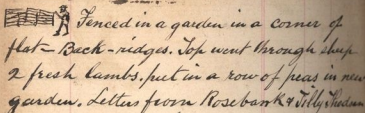 Fenced in a garden in a corner of
flat - Back - ridges. Top went through sheep
2 fresh lambs. put in a row of peas in new
garden. Letters from Rosebank & Tilly